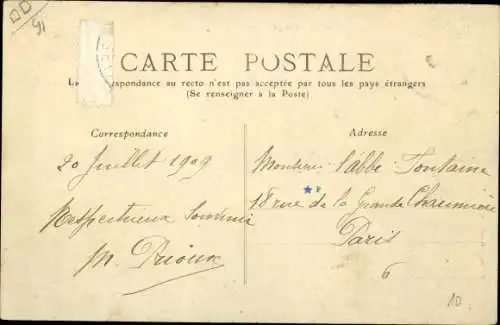 91
CARTE POSTALE
La correspondance au recto n'est pas acceptée par tous les pays étrangers
(Se renseigner à la Poste)
Correspondance
20 Juillet 1909
Respectueux Souvenir
M. Prioux
Adresse
Monsieur l'abbé Fontaine
18 rue de la Grande Chaumière
Paris
6
10